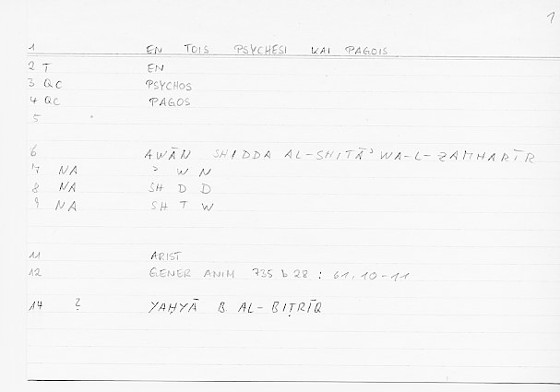 1
1 EN TOIS PSYCHESI KAI PAGOIS
2 T EN
3 QC PSYCHOS
4 QC PAGOS
5
6 AWĀN SHIDDA AL-SHITĀʾ WA-L-ZAMHARĪR
7 NA ʾ W N
8 NA SH D D
9 NA SH T W
11 ARIST
12 GENER ANIM 735 b 28 : 61, 10-11
14 ? YAḤYĀ B AL-BIṬRĪQ